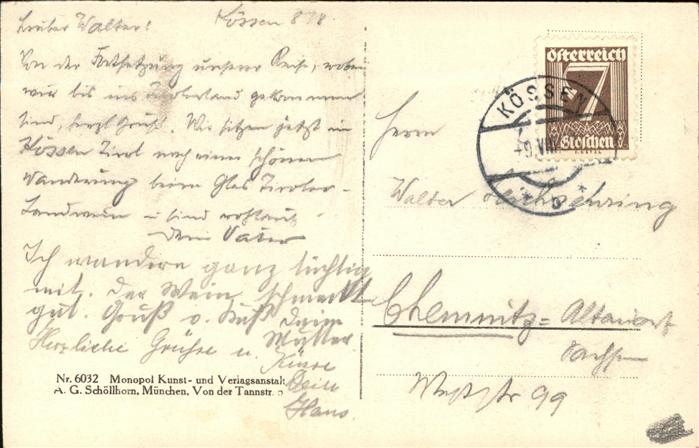 Lieber Walter! Kössen 8/8
Von der Fortsetzung unserer Reise, wobei
wir bis ins Tirolerland gekommen
sind, herzl. Grüße. Wir sitzen jetzt in
Kössen Tirol nach einer schönen
Wanderung beim Glas Tiroler-
Landwein u. sind
Dein Vater
Ich wandere ganz tüchtig
mit. Der Wein schmeckt
gut. Gruß u. Kuß Deine
Mutter
Herzliche Grüße u. Küsse
Dein
Hans.
Nr. 6032 Monopol Kunst- und Verlagsanstalt
A. G. Schöllhorn, München, Von der Tannstr.
österreich
7
Groschen
KÖSSEN
Herrn
Walter
Chemnitz-Altendorf
Sachsen
Weststr 99